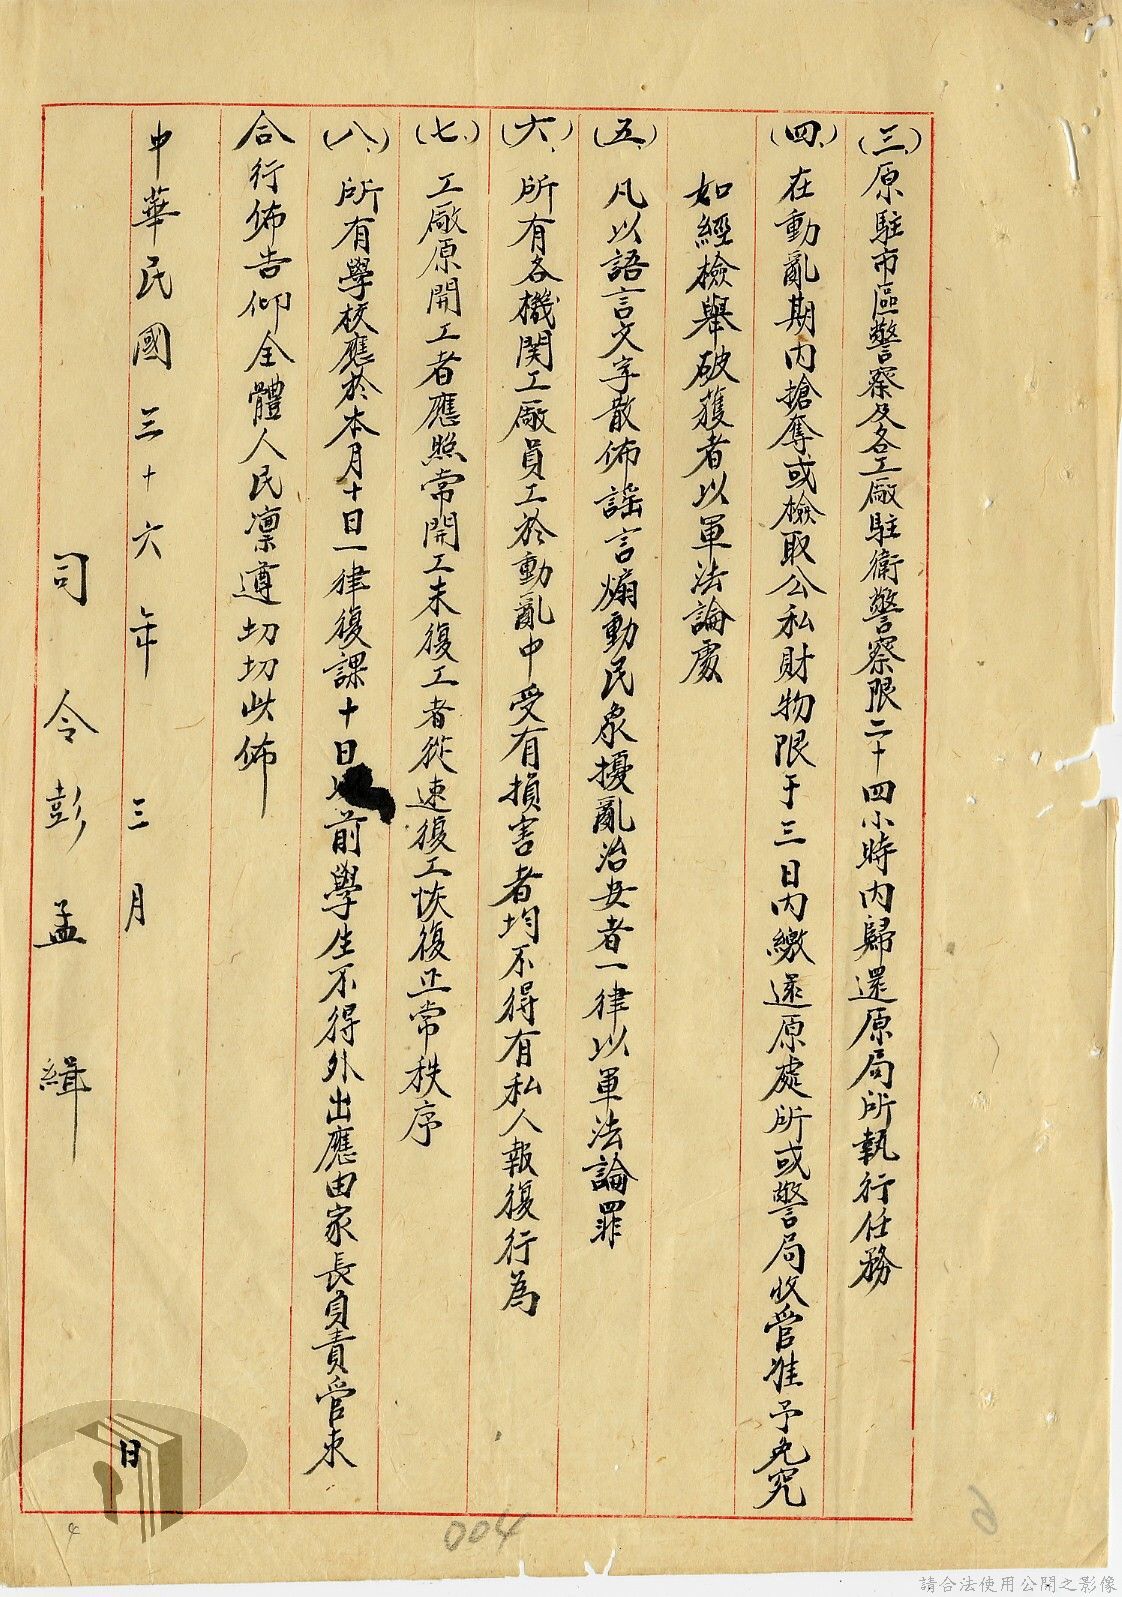 (三)原駐市區警察及各工廠駐衛警察限二十四小時內歸還原局所執行任務
(四)在動亂期內搶奪或檢取公私財物限于三日內繳還原處所或警局收管准予免究
如經檢舉破獲者以軍法論處
(五)凡以語言文字散佈謠言煽動民衆擾亂治安者一律以軍法論罪
(六)所有各機関工廠員工於動亂中受有損害者均不得有私人報復行為
(七)工廠原開工者應照常開工未復工者從速復工恢復正常秩序
(八)所有學校應於本月十日一律復課十日以前學生不得外出應由家長負責管束
合行佈告仰全體人民凛遵切切此佈
中華民國三十六年三月 日
司令彭孟緝
004
6
4
請合法使用公開之影像